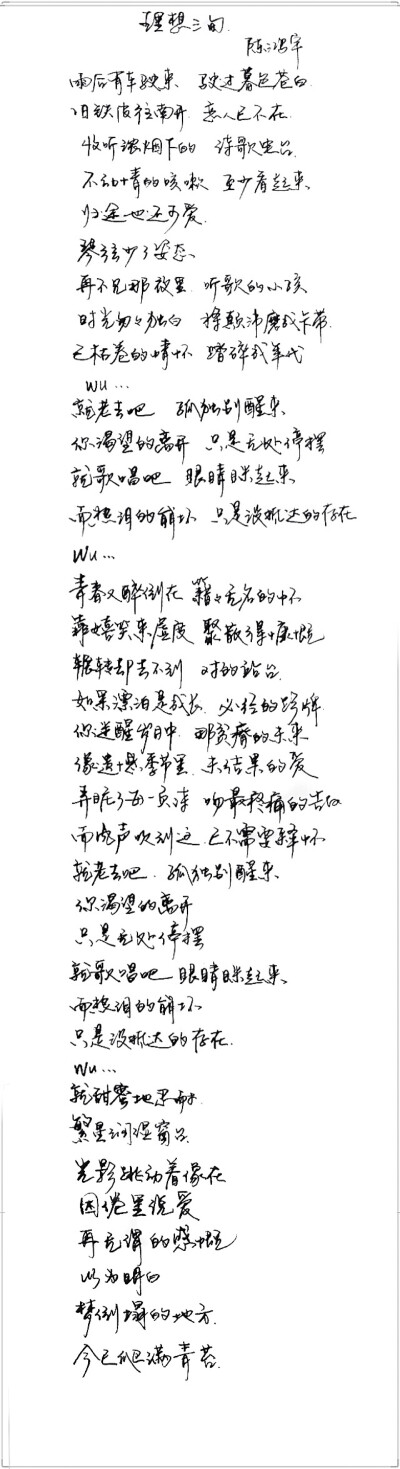 理想三旬
陈鸿宇
雨后有车驶来 驶过暮色苍白
旧铁皮往南开 恋人已不在
收听浓烟下的 诗歌电台
不动情的咳嗽 至少看起来
归途也还可爱
琴弦少了姿态
再不见那夜里 听歌的小孩
时光匆匆独白 将颠沛磨成卡带
已枯卷的情怀 踏碎成年代
wu...
就老去吧 孤独别醒来
你渴望的离开 只是无处停摆
就歌唱吧 眼睛眯起来
而热泪的崩坏 只是没抵达的存在
wu...
青春又醉倒在 籍籍无名的怀
靠嬉笑来虚度 聚散得慷慨
辗转却去不到 对的站台
如果漂泊是成长 必经的路牌
你迷醒岁月中 那贫瘠的未来
像遗憾季节里 未结果的爱
弄脏了每一页诗 吻最疼痛的告白
而风声吹到这 已不需要释怀
就老去吧 孤独别醒来
你渴望的离开
只是无处停摆
就歌唱吧 眼睛眯起来
而热泪的崩坏
只是没抵达的存在
wu...
就甜蜜地忍耐
繁星润湿窗台
光影跳动着像在
困倦里说爱
再无谓的感慨
以为明白
梦倒塌的地方
今已爬满青苔